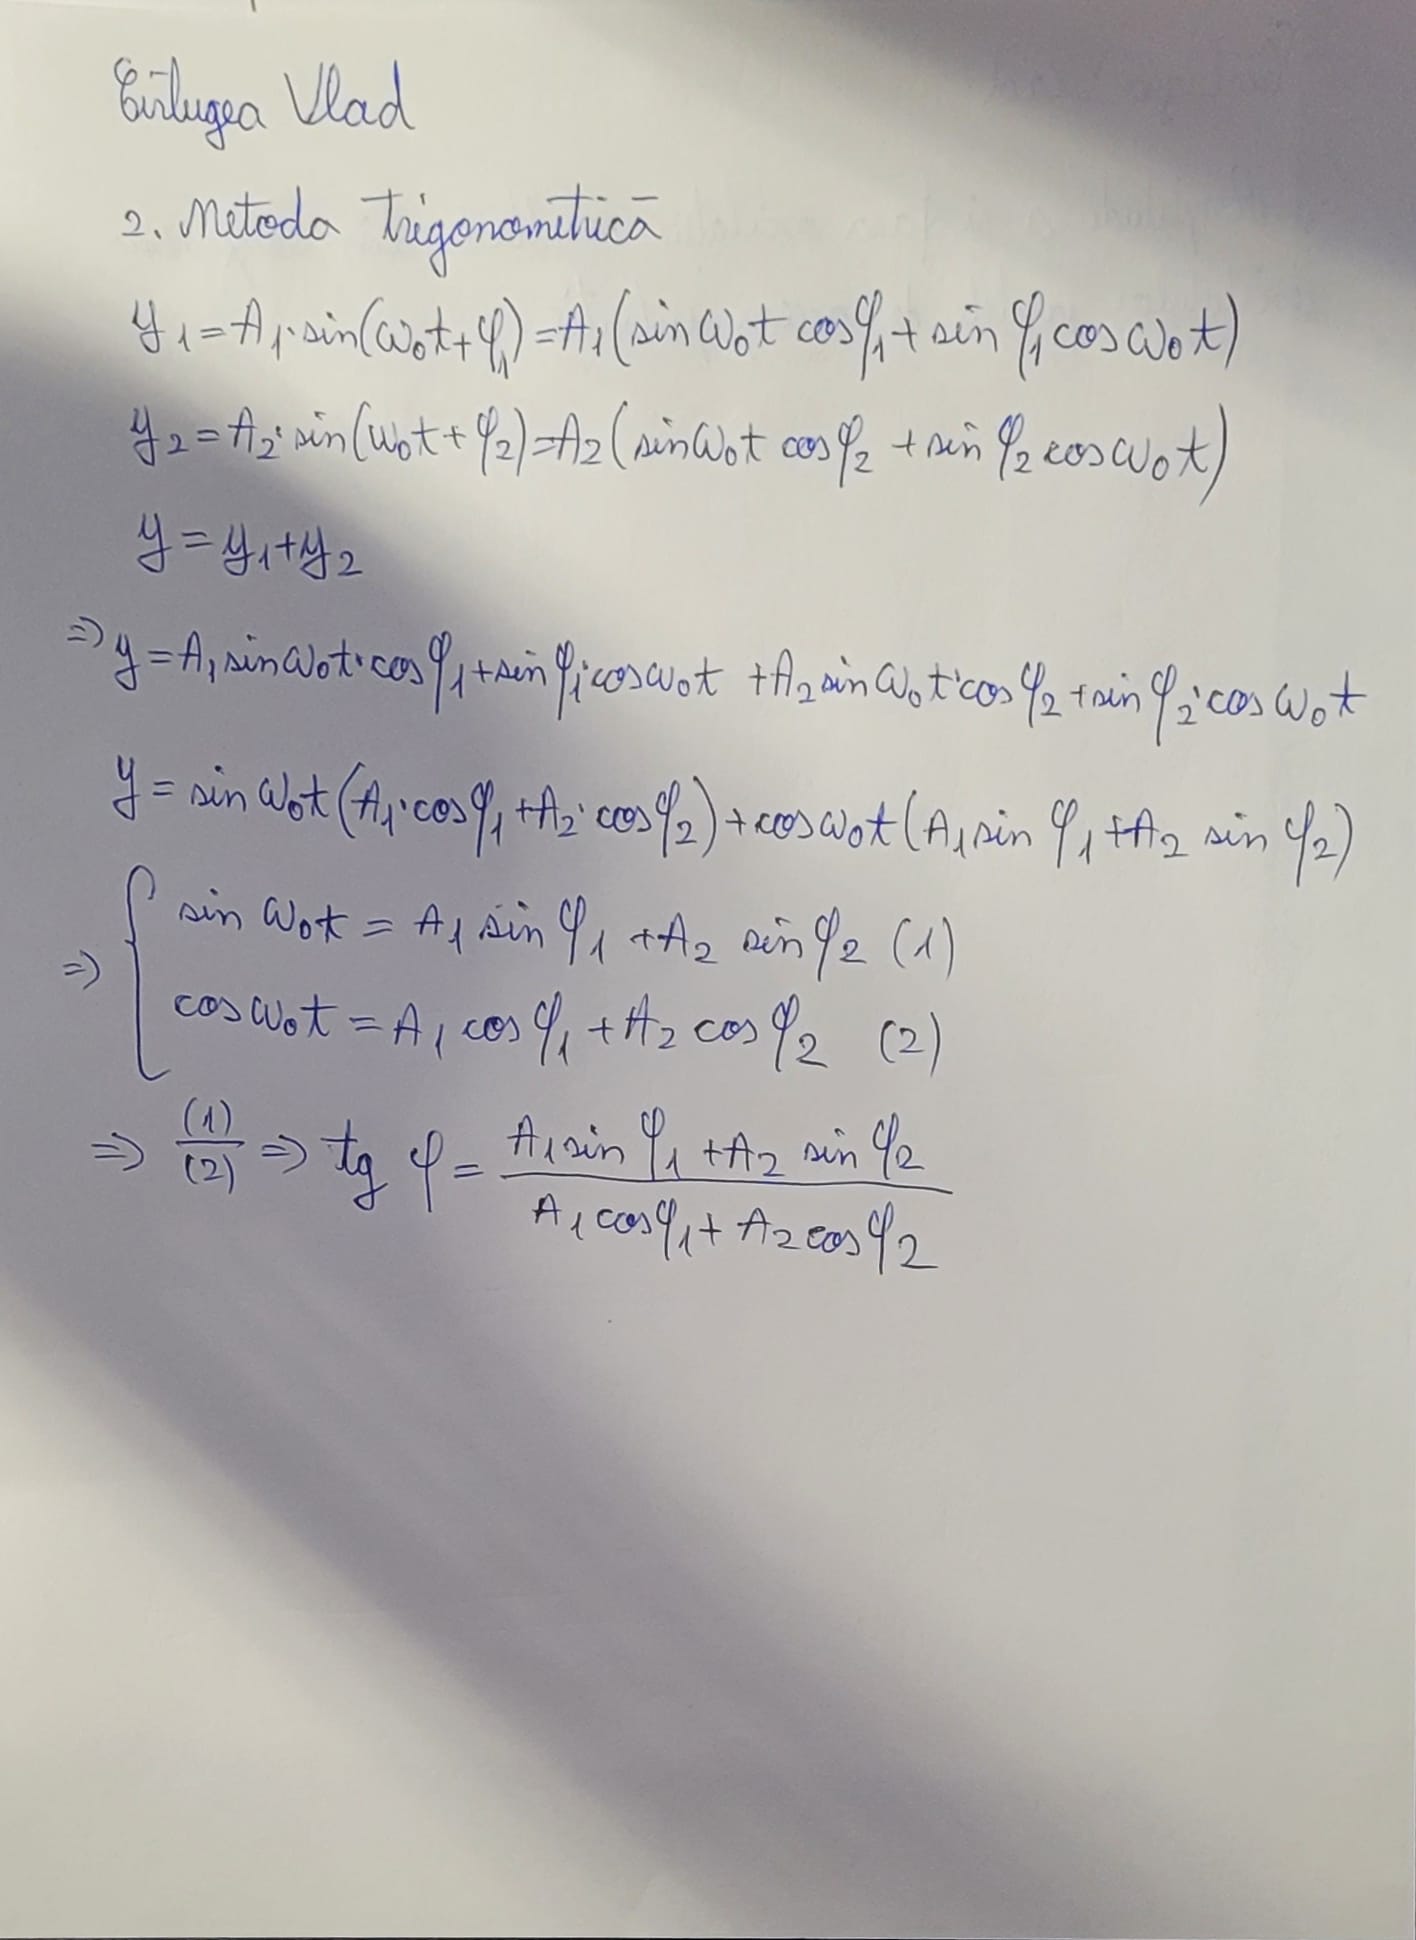 Cîrlugea Vlad
2. Metoda trigonometrică
y₁=A₁·sin(ω₀t+φ₁)=A₁(sin ω₀t cosφ₁+ sin φ₁ cos ω₀t)
y₂=A₂·sin(ω₀t+φ₂)=A₂(sin ω₀t cosφ₂ + sin φ₂ cos ω₀t)
y=y₁+y₂
=> y=A₁ sin ω₀t·cos φ₁+sin φ₁·cos ω₀t +A₂ sin ω₀t·cos φ₂ + sin φ₂·cos ω₀t
y= sin ω₀t(A₁·cosφ₁+A₂·cosφ₂)+cos ω₀t(A₁ sin φ₁+A₂ sin φ₂)
=> { sin ω₀t = A₁ sin φ₁ +A₂ sin φ₂ (1)
cos ω₀t = A₁ cos φ₁ + A₂ cos φ₂ (2)
=> (1)/(2) => tg φ = (A₁ sin φ₁ +A₂ sin φ₂)/(A₁ cosφ₁ + A₂ cosφ₂)